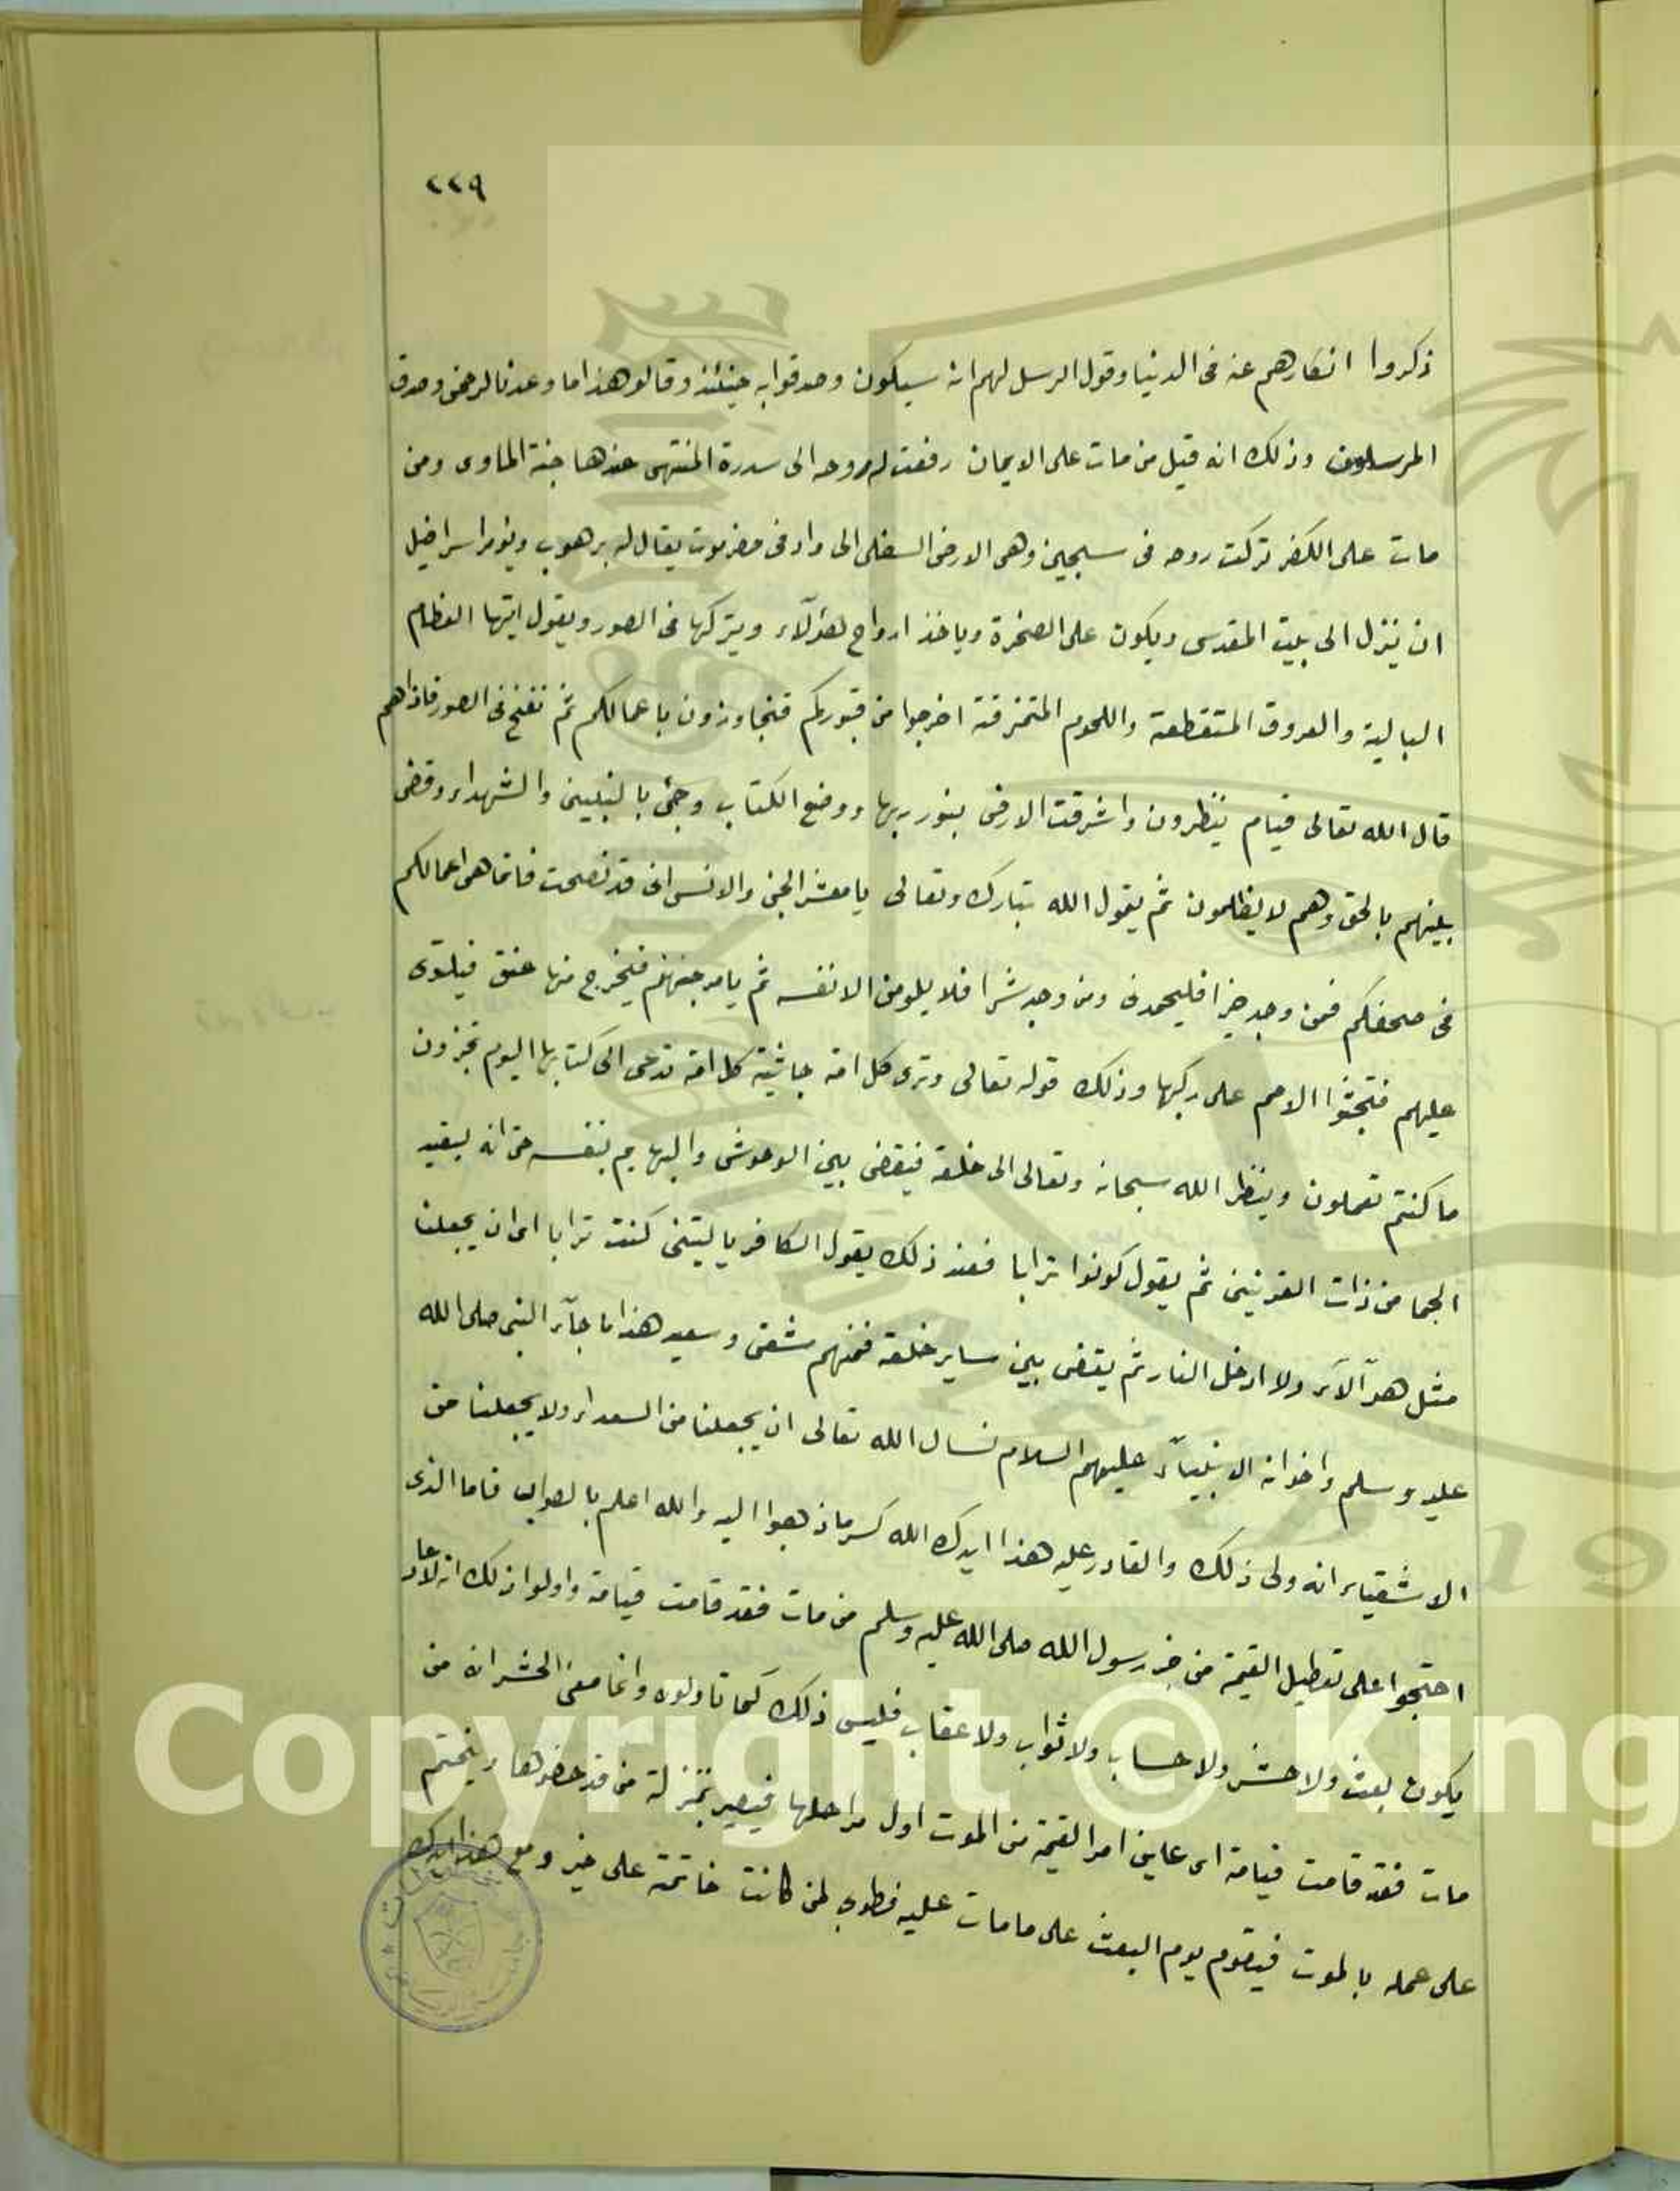 ٢٢٩
ذكروا انكارهم عنه فى الدنيا وقول الرسل لهم انه سيكون وصدقوا به حينئذ وقالو هذا ما وعدنا لرحمن وصدق
المرسلون وذلك انه قيل من مات على الايمان رفعت له روحه الى سدرة المنتهى عندها جنة الماوى ومن
مات على الكفر تركت روحه فى سجين وهى الارض السفلى الى واد فى حضرموت يقال له برهوب ويؤمر اسرافيل
ان ينزل الى بيت المقدس ويكون على الصخرة وياخذ ارواح هؤلآء ويتركها فى الصور ويقول ايتها العظام
البالية والعروق المتقطعة واللحوم المتخرقة اخرجوا من قبوركم فتجاوزون باعمالكم ثم نفخ فى الصور فاذا هم
قال الله تعالى قيام ينظرون واشرقت الارض بنور ربها ووضع الكتاب وجئ بالنبيين والشهداء وقضى
بينهم بالحق وهم لا يظلمون ثم يقول الله تبارك وتعالى يا معشر الجن والانس انى قد نصحت فانما هى اعمالكم
فى صحفكم فمن وجد خيرا فليحمدنى ومن وجد شرا فلا يلومن الا نفسه ثم يامر جهنم فيخرج منها عنق فيلتوى
عليهم فتجثوا الامم على ركبها وذلك قوله تعالى وترى كل امة جاثية كل امة تدعى الى كتابها اليوم تجزون
ما كنتم تعملون وينظر الله سبحانه وتعالى الى خلقه فيقضى بين الوحوش والبهايم بنفسه حتى انه ليقيد
الجما من ذات القرنين ثم يقول كونوا ترابا فعند ذلك يقول الكافر يا ليتنى كنت ترابا اى ان يجعلنا
مثل هؤلآء ولا ادخل النار ثم يقضى بين ساير خلقه فمنهم شقى وسعيد هذا ما جآء النبى صلى الله
عليه وسلم واخوانه الانبيآء عليهم السلام نسال الله تعالى ان يجعلنا من السعداء ولا يجعلنا من
الاشقياء انه ولى ذلك والقادر عليه هذا ايدك الله كسر ما ذهبوا اليه والله اعلم بالصواب فاما الذى
احتجوا على تعطيل القيمة من خبر رسول الله صلى الله عليه وسلم من مات فقد قامت قيامة واولوا ذلك انه لا
يكون بعث ولا حشر ولا حساب ولا ثواب ولا عقاب فليس ذلك كما تاولوه وانما معنى الحشر انه من
مات فقد قامت قيامة اى عاين امر القيمة من الموت اول مراحلها فيصير بمنزلة من قد حضرها ويختم
على عمله بالموت فيقوم يوم البعث على ما مات عليه فطوبى لمن كانت خاتمة على خير ومع هذا ايدك
Copyright © King
19